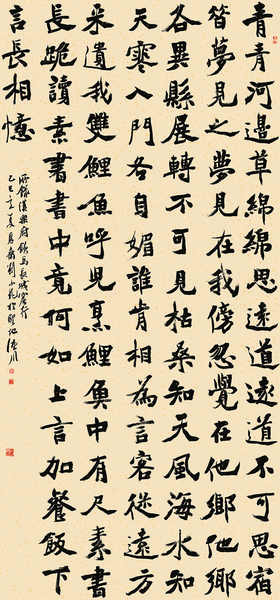 青青河邊草綿綿思遠道遠道不可思宿
昔夢見之夢見在我傍忽覺在他鄉他鄉
各異縣展轉不可見枯桑知天風海水知
天寒入門各自媚誰肯相為言客從遠方
来遺我雙鯉魚呼兒烹鯉魚中有尺素書
長跪讀素書書中竟何如上言加餐飯下
言長相憶
漢樂府飲馬長城窟行
乙巳立夏